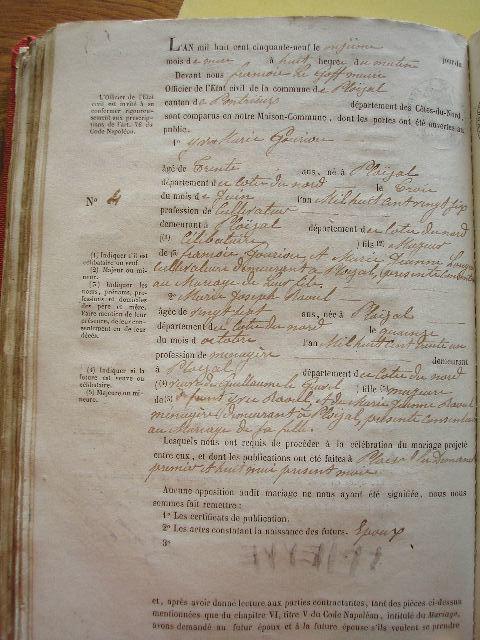 L'AN mil huit cent cinquante-neuf le
mois de mai à huit heures du matin jour du
Devant nous françois Le goff maire
Officier de l'Etat civil de la commune de Ploëzal
canton de Pontrieux département des Côtes-du-Nord,
sont comparus en notre Maison-Commune, dont les portes ont été ouvertes au
public.
1° yves Marie Gouriou
âgé de trente ans, né à Ploëzal
département des cotes du nord le trois
du mois de juin l'an Mil huit cent vingt
profession de cultivateur
demeurant à Ploëzal département des cotes du nord
(1) célibataire ) fils (2) Majeur
de (3) françois Gouriou et Marie Jeanne
cultivateurs demeurant à Ploëzal, présents
au Mariage de leur fils
2° Marie Joseph Raoul
âgée de vingt sept ans, née à Ploëzal
département des cotes du nord le quinze
du mois d'octobre l'an Mil huit cent trente un
profession de menagère demeurant
à Ploëzal département des cotes du nord
(4) veuve de Guillaume le ) fille (5) majeure
de (3) defunt yves Raoul, et de Marie
menagère demeurant à Ploëzal, présente
au Mariage de sa fille.
Lesquels nous ont requis de procéder à la célébration du mariage projeté
entre eux, et dont les publications ont été faites à Ploëzal les Dimanches
premier et huit mai présent mois
Aucune opposition audit mariage ne nous ayant été signifiée, nous nous
sommes fait remettre :
1° Les certificats de publication.
2° Les actes constatant la naissance des futurs. Epoux
3°
et, après avoir donné lecture aux parties contractantes, tant des pièces ci-dessus
mentionnées que du chapitre VI, titre V du Code Napoléon, intitulé du Mariage,
avons demandé au futur époux et à la future épouse s'ils veulent se prendre
L'Officier de l'Etat
civil est invité à se
conformer rigoureu-
sement aux prescrip-
tions de l'art. 76 du
Code Napoléon.
N° 4
(1) Indiquer s'il est
célibataire ou veuf.
(2) Majeur ou mi-
neur.
(3) Indiquer les
noms, prénoms, pro-
fessions et domiciles
des père et mère.
Faire mention de leur
présence, de leur con-
sentement ou de leur
décès.
(4) Indiquer si la
future est veuve ou
célibataire.
(5) Majeure ou mi-
neure.